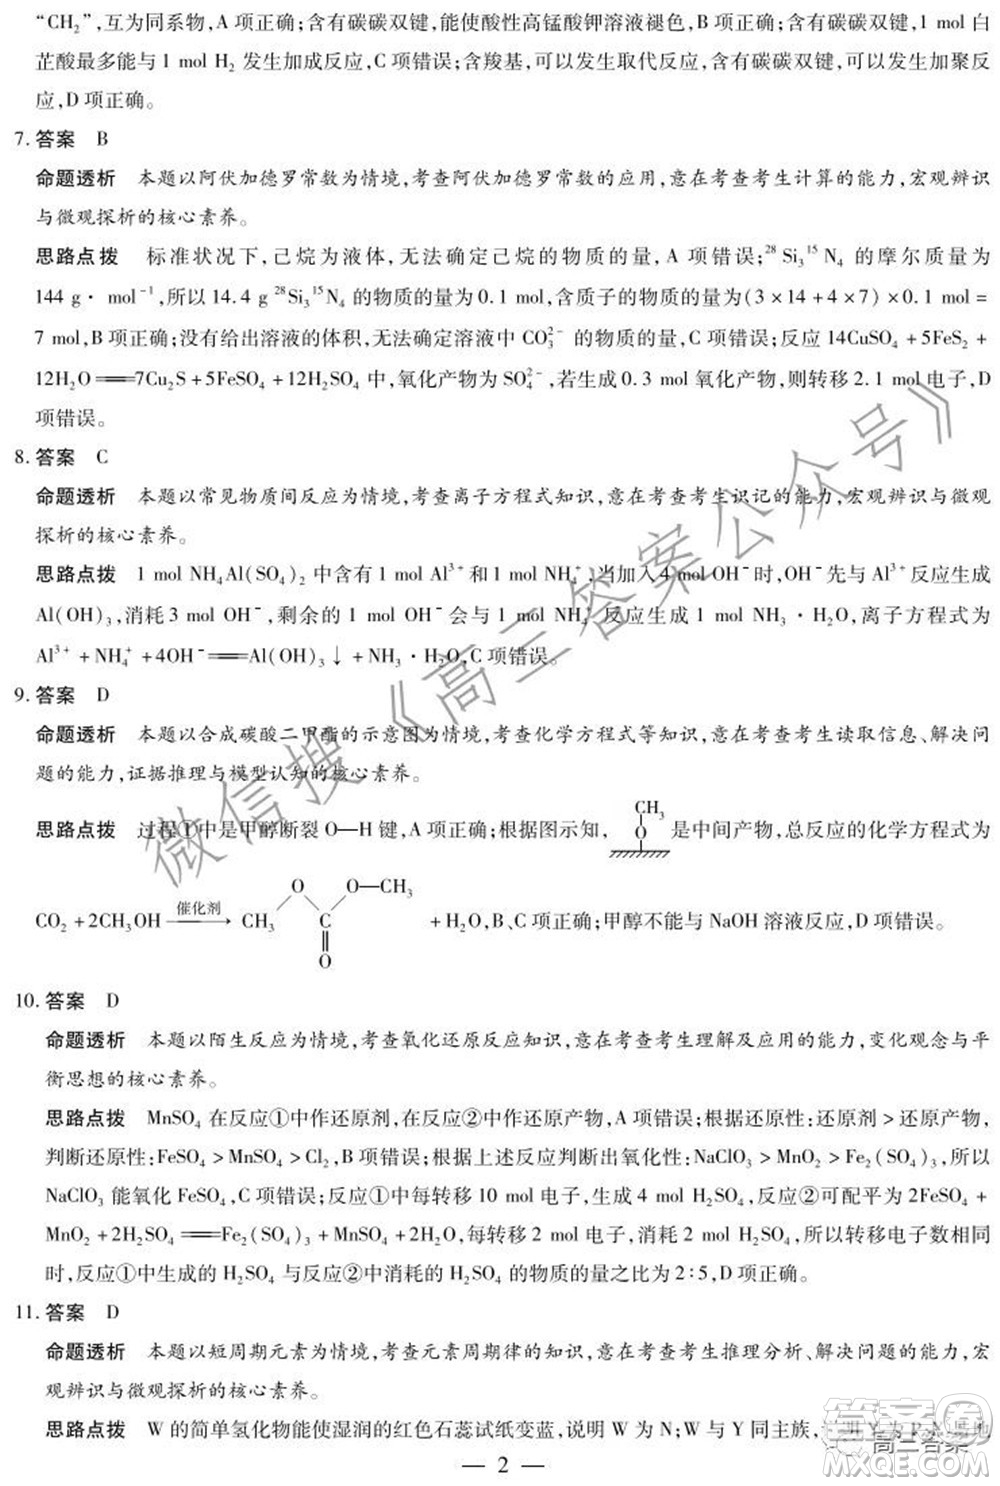 “CH₂”,互为同系物,A 项正确;含有碳碳双键,能使酸性高锰酸钾溶液褪色,B 项正确;含有碳碳双键,1 mol 白
芷酸最多能与 1 mol H₂ 发生加成反应,C 项错误;含羧基,可以发生取代反应,含有碳碳双键,可以发生加聚反
应,D 项正确。
7. 答案 B
命题透析 本题以阿伏加德罗常数为情境,考查阿伏加德罗常数的应用,意在考查考生计算的能力,宏观辨识
与微观探析的核心素养。
思路点拨 标准状况下,己烷为液体,无法确定己烷的物质的量,A 项错误;²⁸Si₃¹⁵N₄ 的摩尔质量为
144 g· mol⁻¹,所以 14.4 g ²⁸Si₃¹⁵N₄ 的物质的量为 0.1 mol,含质子的物质的量为(3×14+4×7)×0.1 mol=
7 mol,B 项正确;没有给出溶液的体积,无法确定溶液中 CO₃²⁻ 的物质的量,C 项错误;反应 14CuSO₄+5FeS₂+
12H₂O══7Cu₂S+5FeSO₄+12H₂SO₄ 中,氧化产物为 SO₄²⁻,若生成 0.3 mol 氧化产物,则转移 2.1 mol 电子,D
项错误。
8. 答案 C
命题透析 本题以常见物质间反应为情境,考查离子方程式知识,意在考查考生识记的能力,宏观辨识与微观
探析的核心素养。
思路点拨 1 mol NH₄Al(SO₄)₂ 中含有 1 mol Al³⁺和 1 mol NH₄⁺,当加入 4 mol OH⁻时,OH⁻先与 Al³⁺反应生成
Al(OH)₃,消耗 3 mol OH⁻,剩余的 1 mol OH⁻会与 1 mol NH₄⁺反应生成 1 mol NH₃·H₂O,离子方程式为
Al³⁺+NH₄⁺+4OH⁻══Al(OH)₃↓+NH₃·H₂O,C 项错误。
9. 答案 D
命题透析 本题以合成碳酸二甲酯的示意图为情境,考查化学方程式等知识,意在考查考生读取信息、解决问
题的能力,证据推理与模型认知的核心素养。
CH₃
思路点拨 过程①中是甲醇断裂 O—H 键,A 项正确;根据图示知, O 是中间产物,总反应的化学方程式为
O O—CH₃
CO₂+2CH₃OH 催化剂→ CH₃ C +H₂O,B、C 项正确;甲醇不能与 NaOH 溶液反应,D 项错误。
O
10. 答案 D
命题透析 本题以陌生反应为情境,考查氧化还原反应知识,意在考查考生理解及应用的能力,变化观念与平
衡思想的核心素养。
思路点拨 MnSO₄ 在反应①中作还原剂,在反应②中作还原产物,A 项错误;根据还原性:还原剂>还原产物,
判断还原性:FeSO₄>MnSO₄>Cl₂,B 项错误;根据上述反应判断出氧化性:NaClO₃>MnO₂>Fe₂(SO₄)₃,所以
NaClO₃ 能氧化 FeSO₄,C 项错误;反应①中每转移 10 mol 电子,生成 4 mol H₂SO₄,反应②可配平为 2FeSO₄+
MnO₂+2H₂SO₄══Fe₂(SO₄)₃+MnSO₄+2H₂O,每转移 2 mol 电子,消耗 2 mol H₂SO₄,所以转移电子数相同
时,反应①中生成的 H₂SO₄ 与反应②中消耗的 H₂SO₄ 的物质的量之比为 2∶5,D 项正确。
11. 答案 D
命题透析 本题以短周期元素为情境,考查元素周期律的知识,意在考查考生推理分析、解决问题的能力,宏
观辨识与微观探析的核心素养。
思路点拨 W 的简单氢化物能使湿润的红色石蕊试纸变蓝,说明 W 为 N;W 与 Y 同主族,
— 2 —
微信搜《高三答案公众号》
高三答案